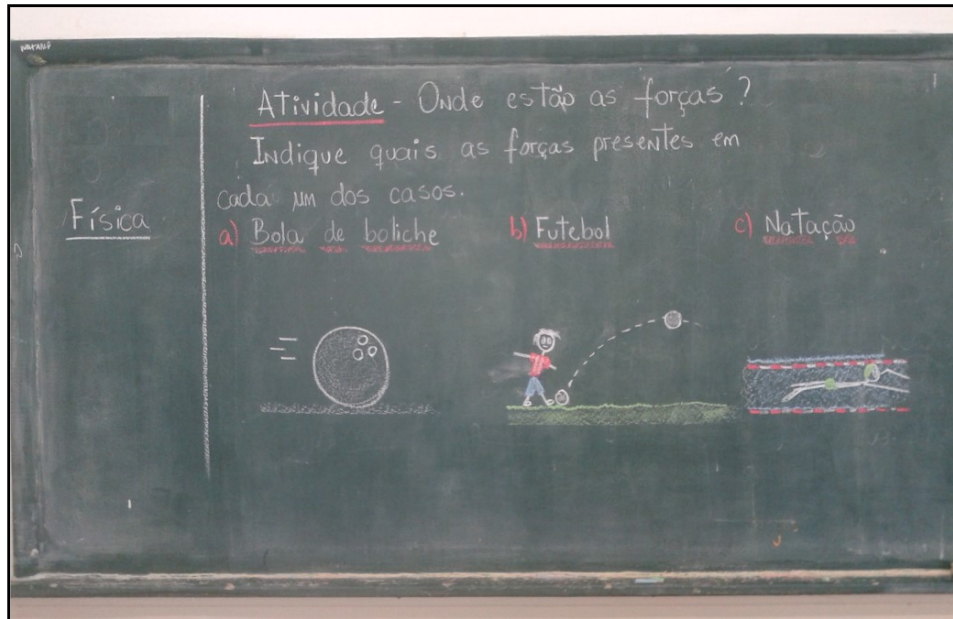 Atividade - Onde estão as forças?
Indique quais as forças presentes em
cada um dos casos.
Física
a) Bola de boliche
b) Futebol
c) Natação